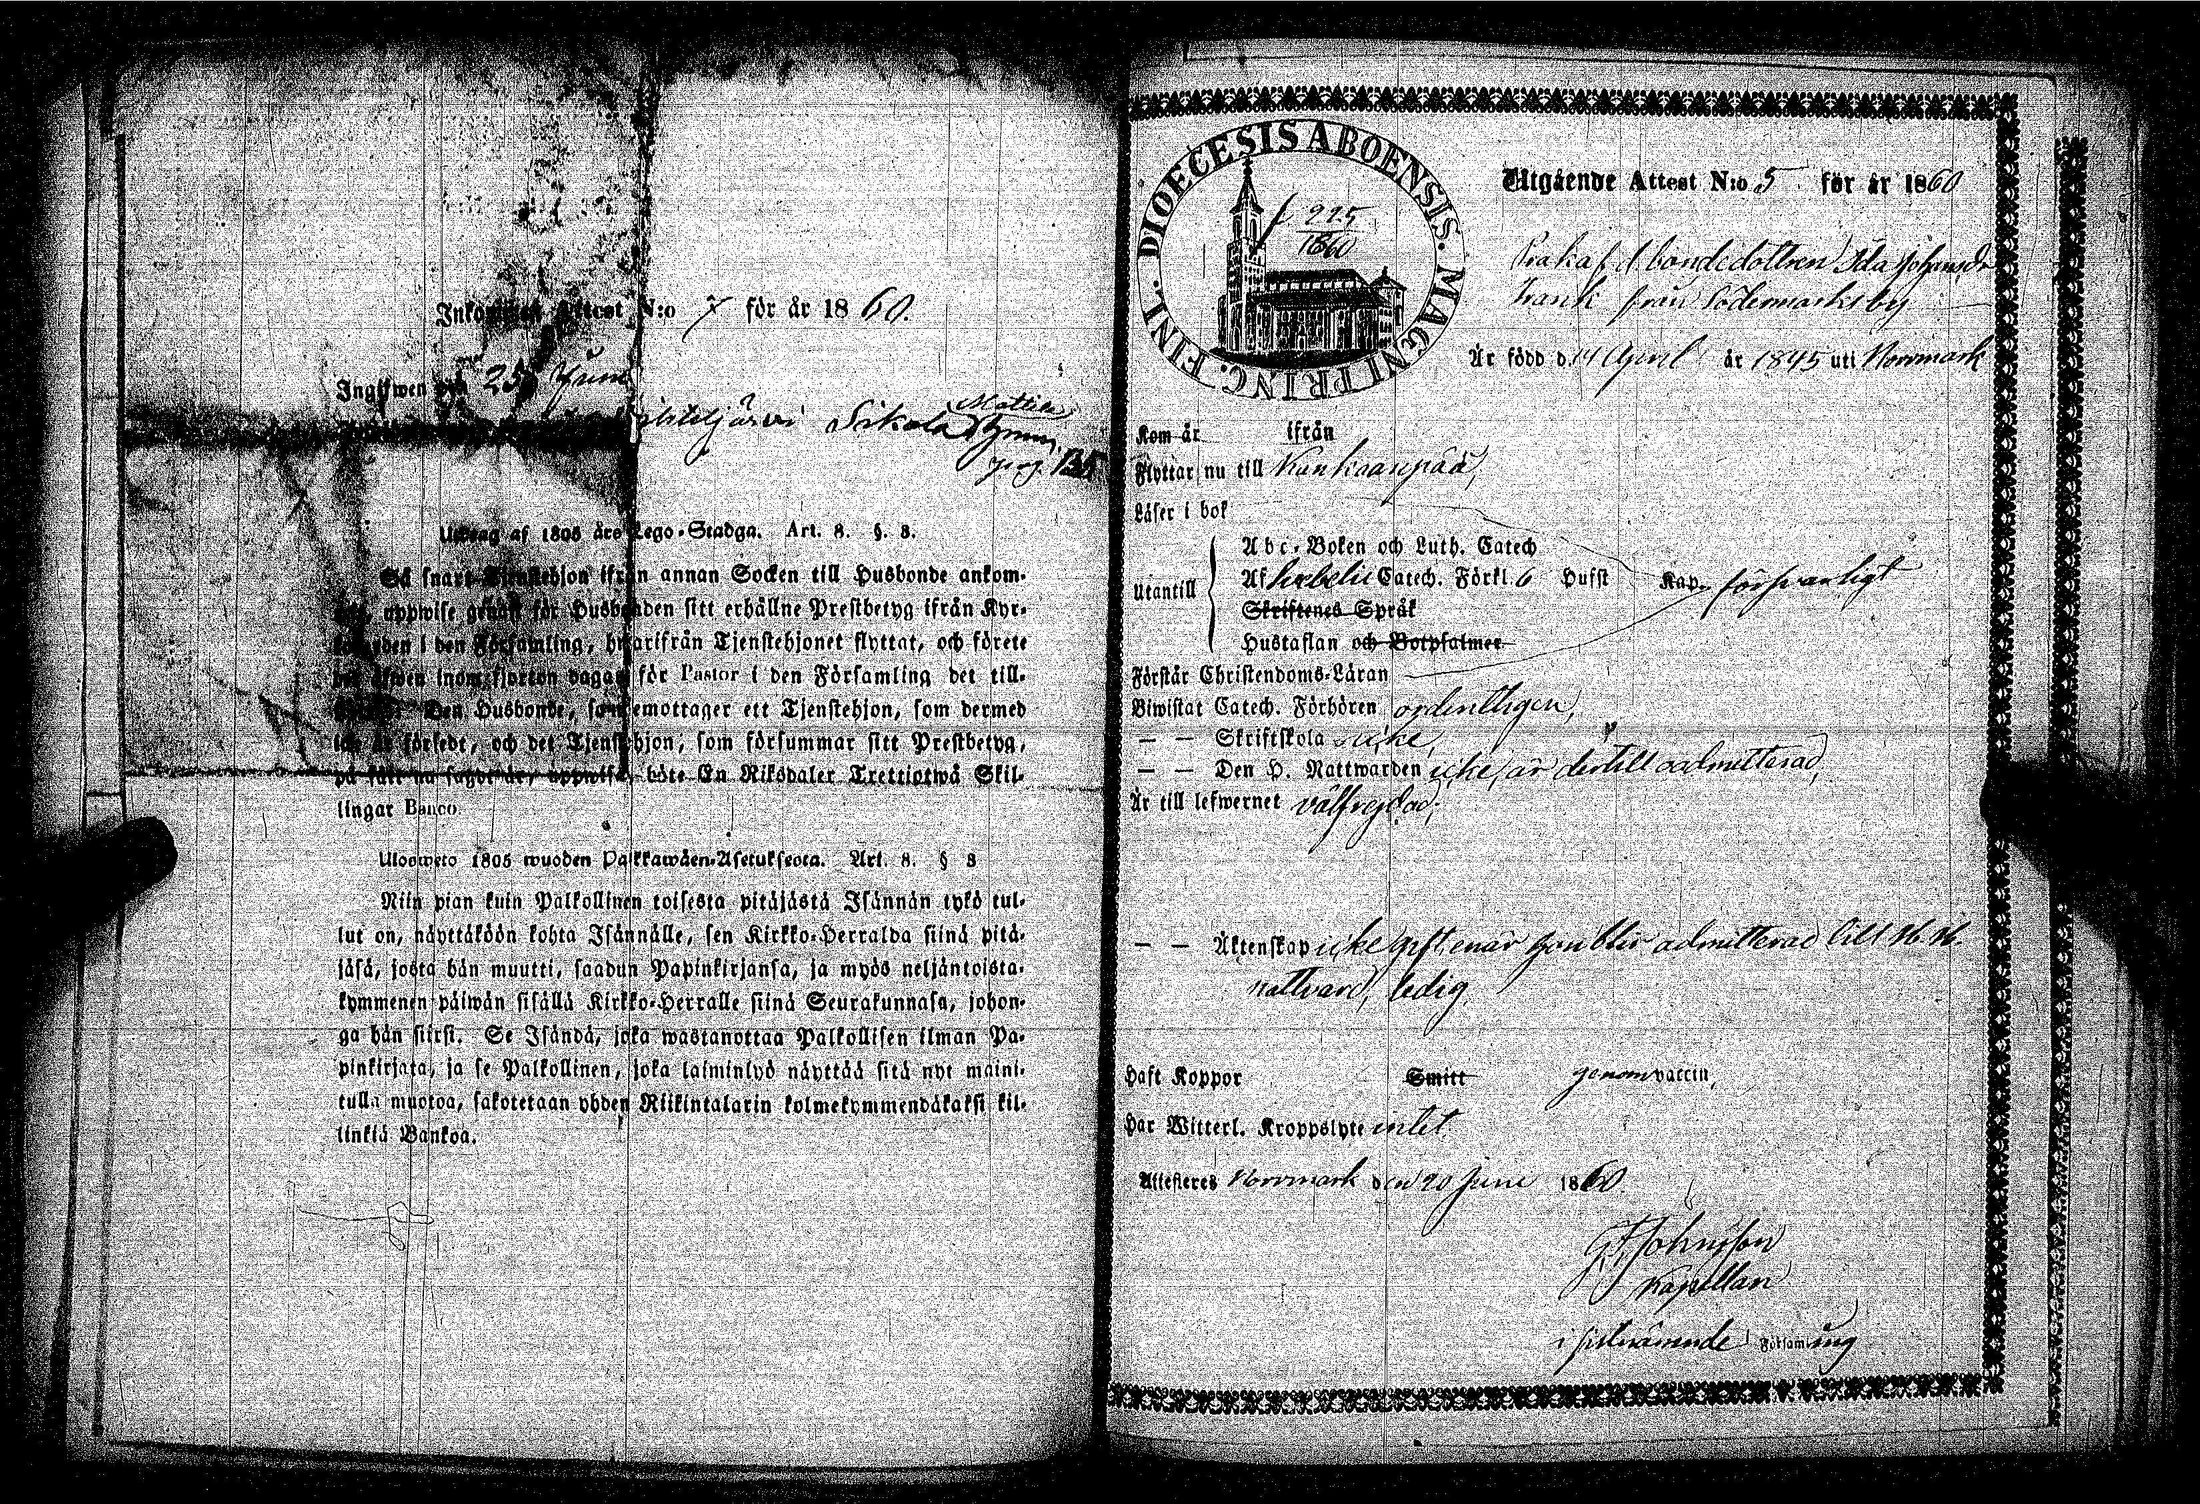 Inkommen Attest N:o 7 för år 1860.
Ingifwen den 25 Juni
Sikala Mattila
pag. 135
Utdrag af 1805 års Lego-Stadga. Art. 8. §. 3.
Så snart Tjenstehjon ifrån annan Socken till Husbonde ankom-
uppwise genast för Husbonden sitt erhållne Prestbetyg ifrån Kyr-
i den Församling, hwarifrån Tjenstehjonet flyttat, och förete
det äfwen inom fjorton dagar för Pastor i den Församling det till-
Den Husbonde, som emottager ett Tjenstehjon, som dermed
icke är försedt, och det Tjenstehjon, som försummar sitt Prestbetyg,
på sätt nu sagdt är, uppwisa, böte En Riksdaler Trettiotwå Skil-
lingar Banco.
Ulosweto 1805 wuoden Palkkawäen-Asetuksesta. Art. 8. § 3
Niin pian kuin Palkollinen toisesta pitäjästä Isännän tykö tul-
lut on, näyttäköön kohta Isännälle, sen Kirkko-Herralda siinä pitä-
jäsä, josta hän muutti, saadun Papinkirjansa, ja myös neljäntoista-
kymmenen päiwän sisällä Kirkko-Herralle siinä Seurakunnasa, johon-
ga hän siirsi. Se Isändä, joka wastanottaa Palkollisen ilman Pa-
pinkirjata, ja se Palkollinen, joka laiminlyö näyttää sitä nyt maini-
tulla muotoa, sakotetaan yhden Riikintalarin kolmekymmendäkaksi kil-
linkiä Bankoa.
DIOECESIS ABOENSIS. MAGNI PRINC. FINL.
225
1860
Utgående Attest N:o 5 för år 1860
bondedottren Ida Johansdr
Frank från Södermarks by
Är född d. 14 April år 1845 uti Norrmark
Kom år ifrån
Flyttar nu till Kankaanpää,
Läser i bok
Utantill
Abc-Boken och Luth. Catech
Af Svebelii Catech. Förkl 6 Hufst Kap. försvarligt
Skriftenes Språk
Hustaflan och Botpsalmer
Förstår Christendoms-Läran
Biwistat Catech. Förhören ordentligen,
— — Skriftskola icke,
— — Den H. Nattwarden icke, är dertill oadmitterad,
Är till lefwernet välfrejdad;
— — Äktenskap icke gift enär hon blir admitterad till H. H.
nattvard, ledig
Haft Koppor Smitt genom vaccin,
Har Witterl. Kroppslyte intet
Attesteres Norrmark den 20 Junii 1860.
Johnsson
Kapellan
i sistnämnde Församling